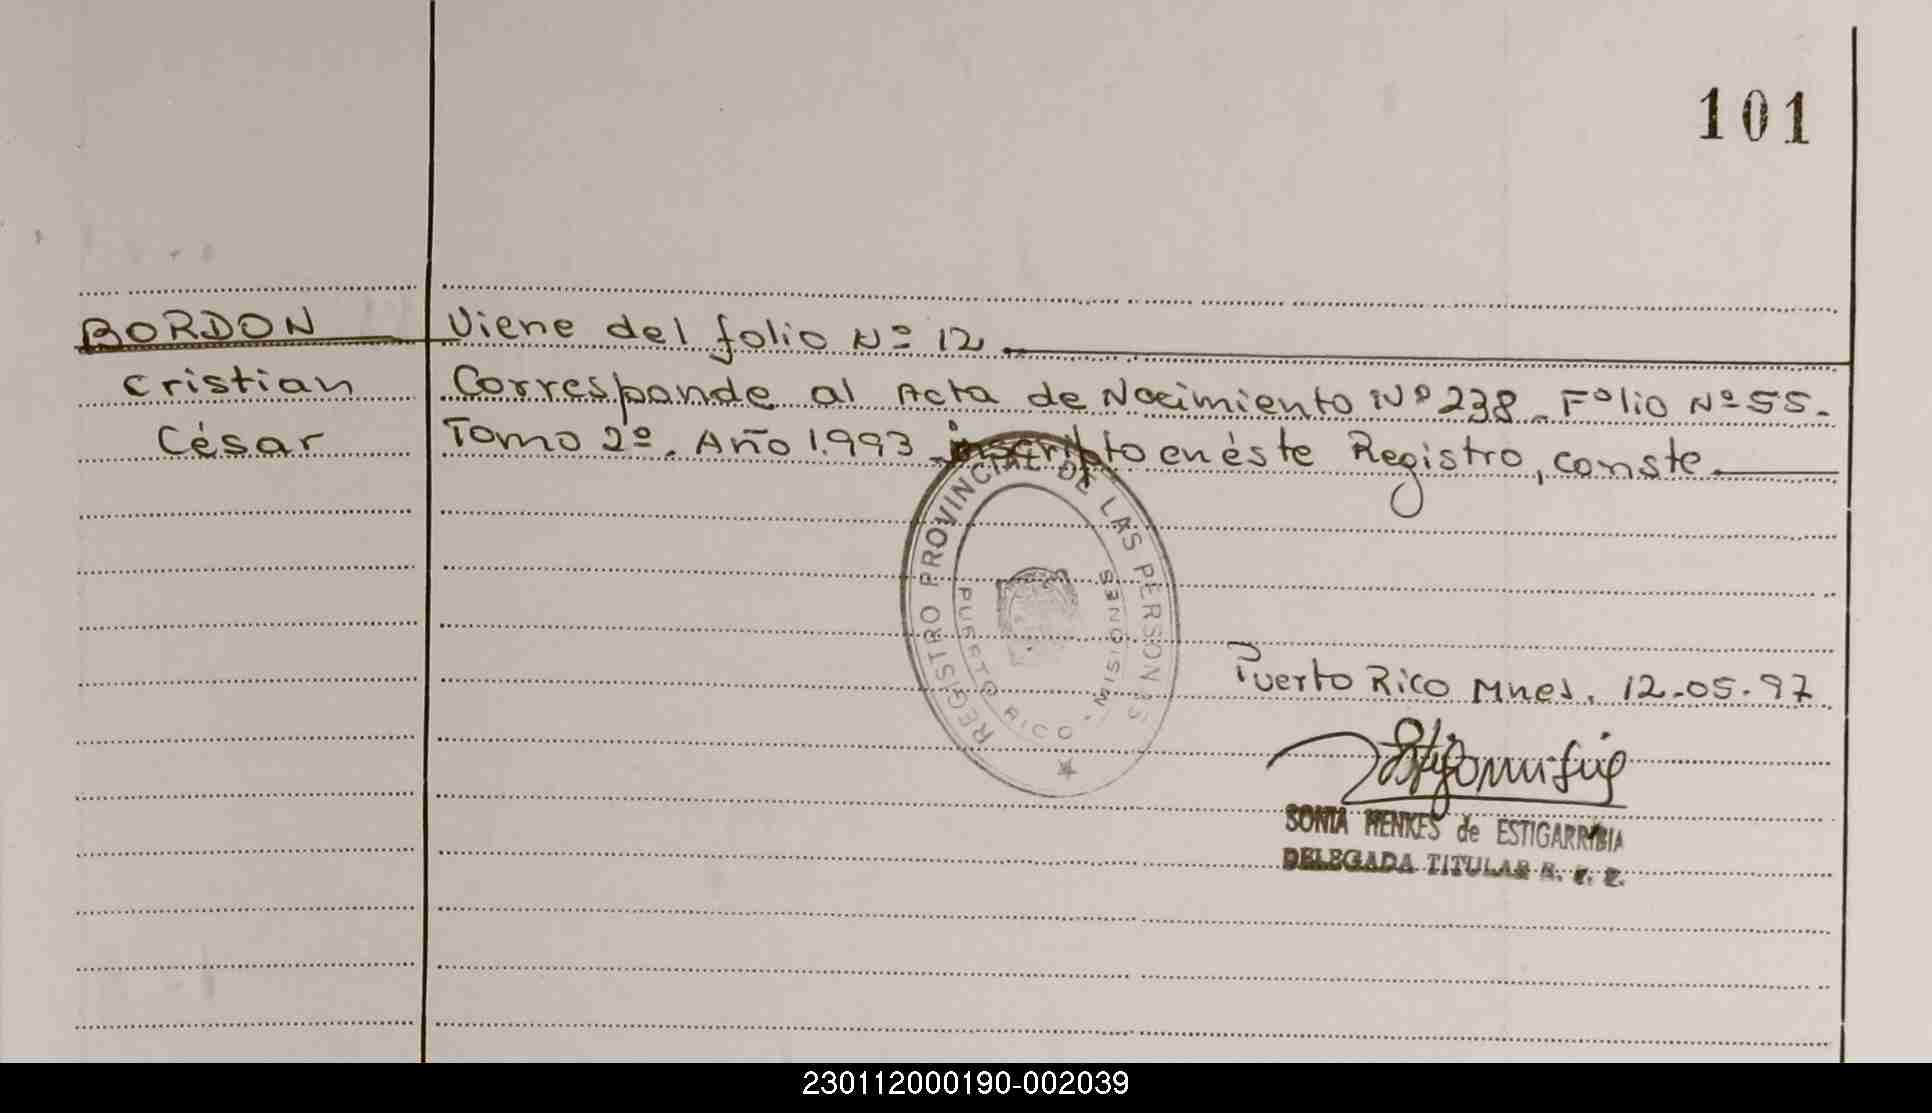 101
BORDON Viene del folio Nº 12
Cristian Corresponde al Acta de Nacimiento Nº 238. Folio Nº 55.
César Tomo 2º. Año 1.993 inscripto en éste Registro, conste.
REGISTRO PROVINCIAL DE LAS PERSONAS
PUERTO RICO - MISIONES
Puerto Rico Mnes. 12-05-97
SONIA MENKES de ESTIGARRIBIA
DELEGADA TITULAR
230112000190-002039